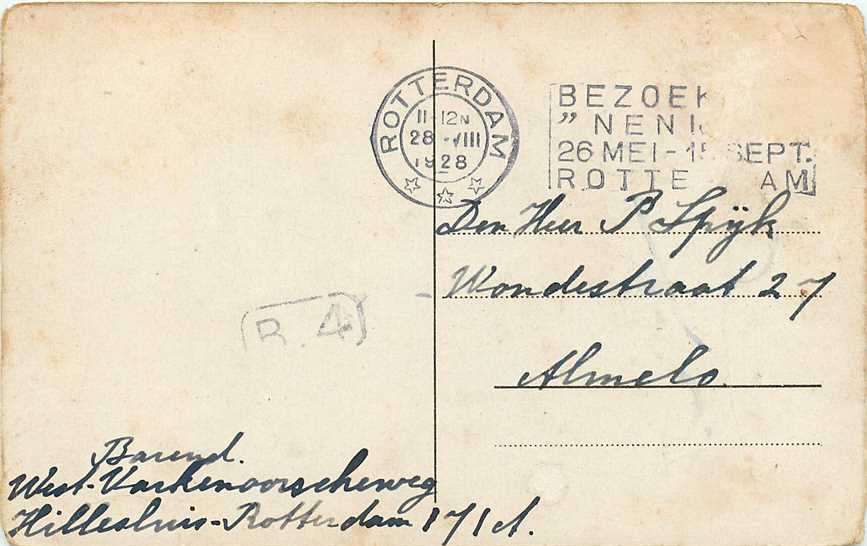 ROTTERDAM
11-12N
28 -VIII
1928
BEZOEK
"NENI
26 MEI - 15 SEPT.
ROTTE AM
Den Heer P Spijk
Wondestraat 27
Almelo
B. 4
Barend.
West-Varkenoorscheweg
Hillesluis-Rotterdam 171 A.